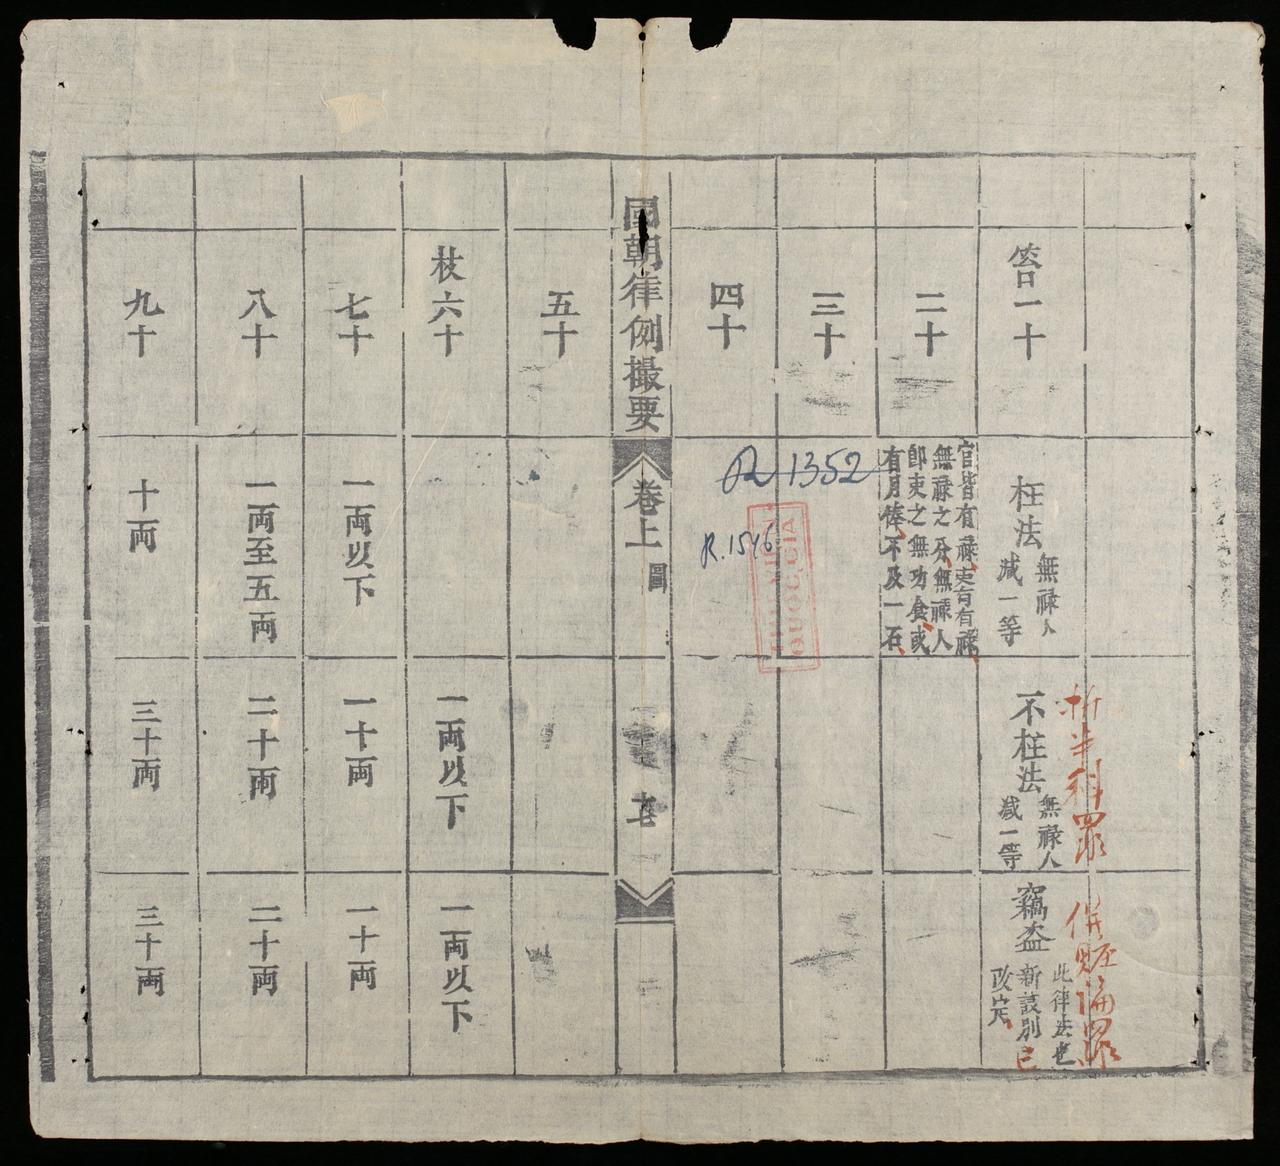 笞一十
枉法
無祿人
減一等
不枉法
無祿人
減一等
折半科罪
竊盗
此律法也
新議別已
改定
併賍論罪
二十
官皆有祿吏有有祿
無祿之分無祿人
即吏之無功食或
有月俸不及一石
三十
四十
R 1352
R. 1546
THU VIEN
QUOC GIA
國朝律例撮要
卷上
圖
七
五十
杖六十
一両以下
一両以下
七十
一両以下
一十両
一十両
八十
一両至五両
二十両
二十両
九十
十両
三十両
三十両